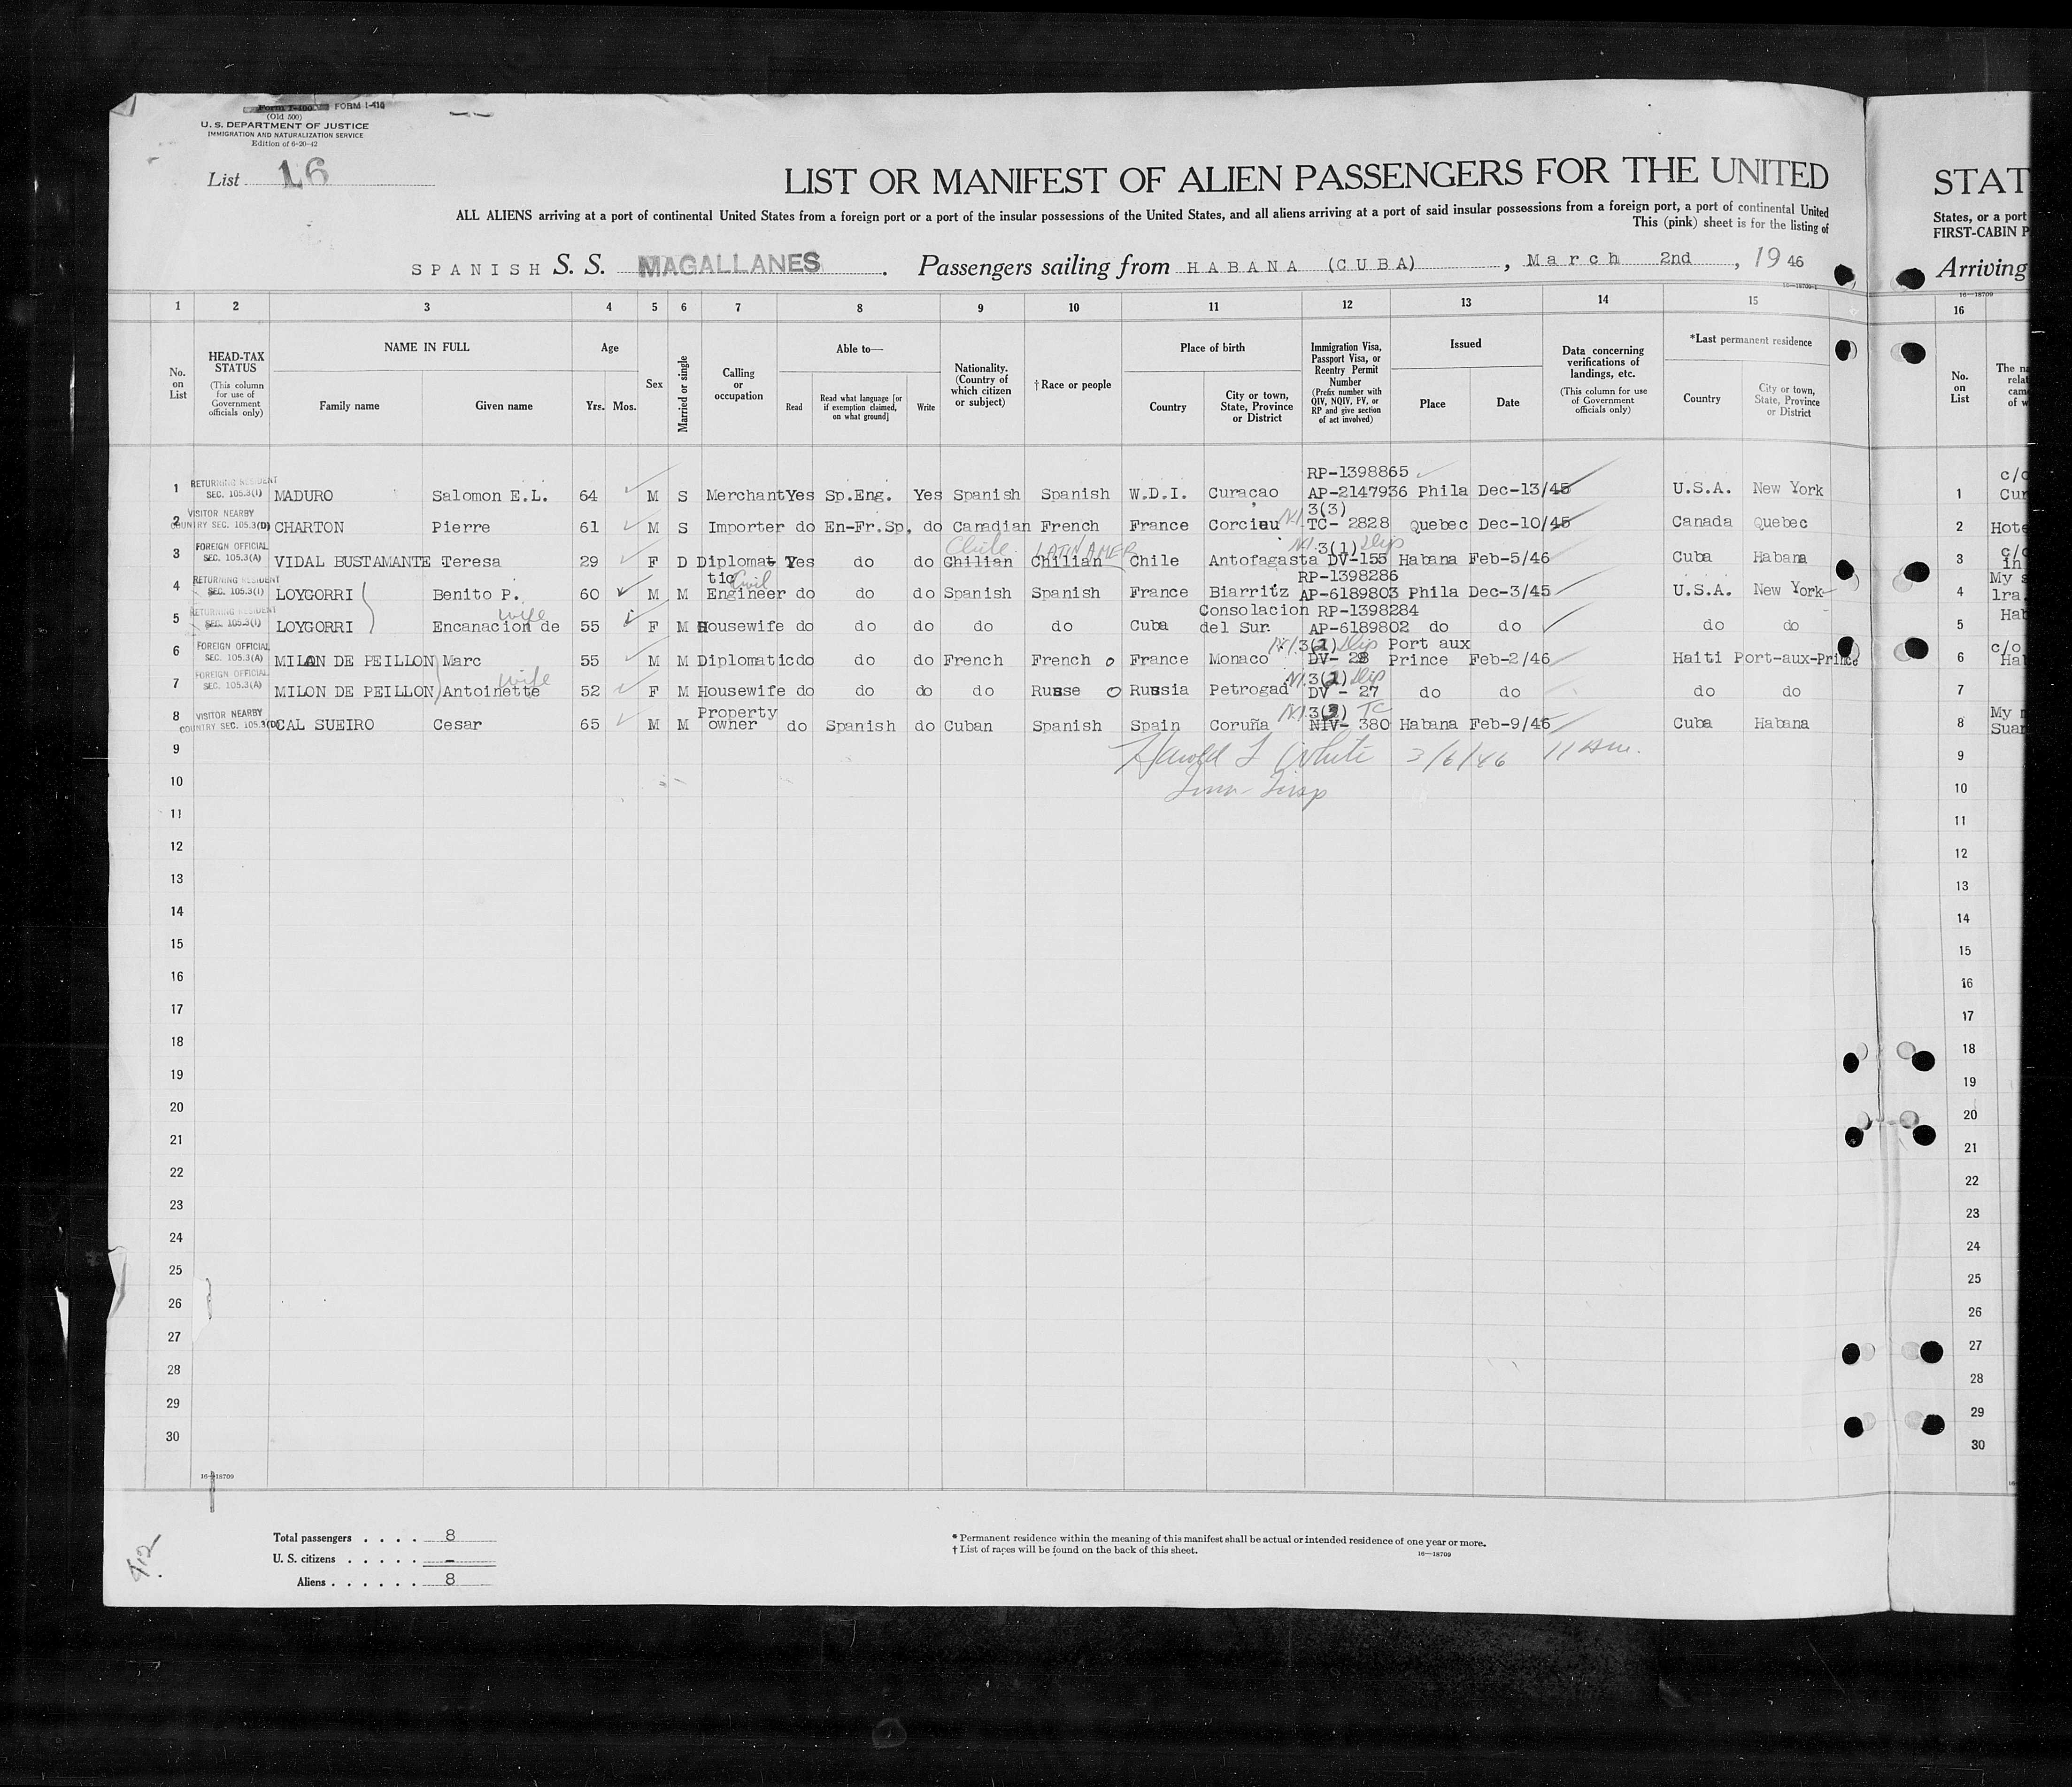 Form I-400 FORM I-415
(Old 500)
U. S. DEPARTMENT OF JUSTICE
IMMIGRATION AND NATURALIZATION SERVICE
Edition of 6-20-42
List 16
LIST OR MANIFEST OF ALIEN PASSENGERS FOR THE UNITED
STAT
ALL ALIENS arriving at a port of continental United States from a foreign port or a port of the insular possessions of the United States, and all aliens arriving at a port of said insular possessions from a foreign port, a port of continental United
States, or a port
This (pink) sheet is for the listing of
FIRST-CABIN P
SPANISH S. S. MAGALLANES. Passengers sailing from HABANA (CUBA), March 2nd, 19 46
Arriving
16—18709-1
16—18709
1 2 3 4 5 6 7 8 9 10 11 12 13 14 15
16
No. on List
HEAD-TAX STATUS (This column for use of Government officials only)
NAME IN FULL
Family name Given name
Age
Yrs. Mos.
Sex
Married or single
Calling or occupation
Able to—
Read Read what language [or if exemption claimed, on what ground] Write
Nationality. (Country of which citizen or subject)
† Race or people
Place of birth
Country City or town, State, Province or District
Immigration Visa, Passport Visa, or Reentry Permit Number (Prefix number with QIV, NQIV, PV, or RP and give section of act involved)
Issued
Place Date
Data concerning verifications of landings, etc. (This column for use of Government officials only)
*Last permanent residence
Country City or town, State, Province or District
No. on List
The na
relat
came
of w
RP-1398865
1 RETURNING RESIDENT SEC. 105.3(1) MADURO Salomon E.L. 64 M S Merchant Yes Sp.Eng. Yes Spanish Spanish W.D.I. Curacao AP-2147936 Phila Dec-13/45 U.S.A. New York
1 c/o Cur
3(3)
2 VISITOR NEARBY COUNTRY SEC. 105.3(D) CHARTON Pierre 61 M S Importer do En-Fr.Sp. do Canadian French France NI TC- 2828 Quebec Dec-10/45 Canada Quebec
2 Hote
Chile LATIN AMER NI 3(1) Dip
3 FOREIGN OFFICIAL SEC. 105.3(A) VIDAL BUSTAMANTE Teresa 29 F D Diplomatic Yes do do Chilian Chilian Chile Antofagasta DV-155 Habana Feb-5/46 Cuba Habana
3 c/o in
Civil RP-1398286
4 RETURNING RESIDENT SEC. 105.3(1) LOYGORRI Benito P. 60 M M Engineer do do do Spanish Spanish France Biarritz AP-6189803 Phila Dec-3/45 U.S.A. New York
4 My s lra.
wife Consolacion RP-1398284
5 RETURNING RESIDENT SEC. 105.3(1) LOYGORRI Encanacion de 55 F M Housewife do do do do do Cuba del Sur. AP-6189802 do do do do
5 Hab
NI 3(1) Dip Port aux
6 FOREIGN OFFICIAL SEC. 105.3(A) MILON DE PEILLON Marc 55 M M Diplomatic do do do French French o France Monaco DV- 28 Prince Feb-2/46 Haiti Port-aux-Prince
6 c/o Hai
wife NI 3(1) Dip
7 FOREIGN OFFICIAL SEC. 105.3(A) MILON DE PEILLON Antoinette 52 F M Housewife do do do do Russe o Russia Petrogad DV - 27 do do do do
7
Property NI 3(3) TC
8 VISITOR NEARBY COUNTRY SEC. 105.3(D) CAL SUEIRO Cesar 65 M M owner do Spanish do Cuban Spanish Spain Coruña NIV- 380 Habana Feb-9/46 Cuba Habana
8 My Suar
9 Harold L White 3/6/46 11 Am.
9
10 Imm- Insp
10
11 11
12 12
13 13
14 14
15 15
16 16
17 17
18 18
19 19
20 20
21 21
22 22
23 23
24 24
25 25
26 26
27 27
28 28
29 29
30 30
16—18709
Total passengers . . . . 8
U. S. citizens . . . . . -
Aliens . . . . . . 8
* Permanent residence within the meaning of this manifest shall be actual or intended residence of one year or more.
† List of races will be found on the back of this sheet.
16—18709